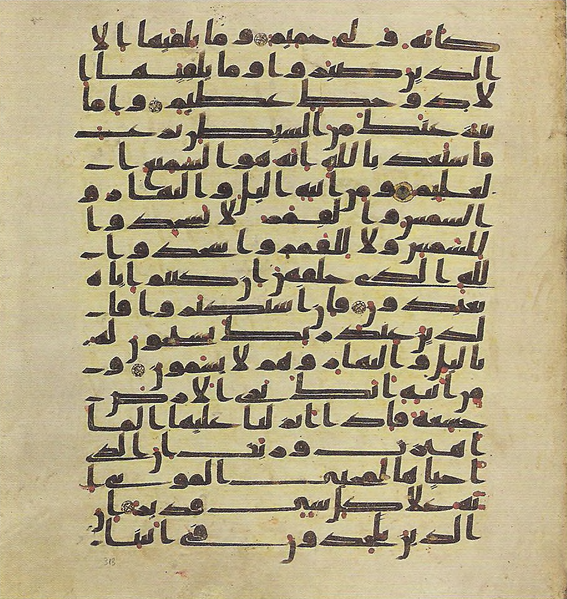 كانه ولي حميم وما يلقيها الا
الذين صبروا وما يلقيها ا
لا ذو حظ عظيم واما
ينزغنك من الشيطن نزغ
فاستعذ بالله انه هو السميع ا
لعليم ومن ايته اليل والنهار و
الشمس والقمر لا تسجدوا
للشمس ولا للقمر واسجدوا
لله الذي خلقهن ان كنتم اياه
تعبدون فان استكبروا فا
لذين عند ربك يسبحون له
باليل والنهار وهم لا يسمون و
من ايته انك ترى الارض
خشعة فاذا انزلنا عليها الما
اهتزت وربت ان الذي
احياها لمحي الموتى ا
نه على كل شي قدير ان
الذين يلحدون في ايتنا
318